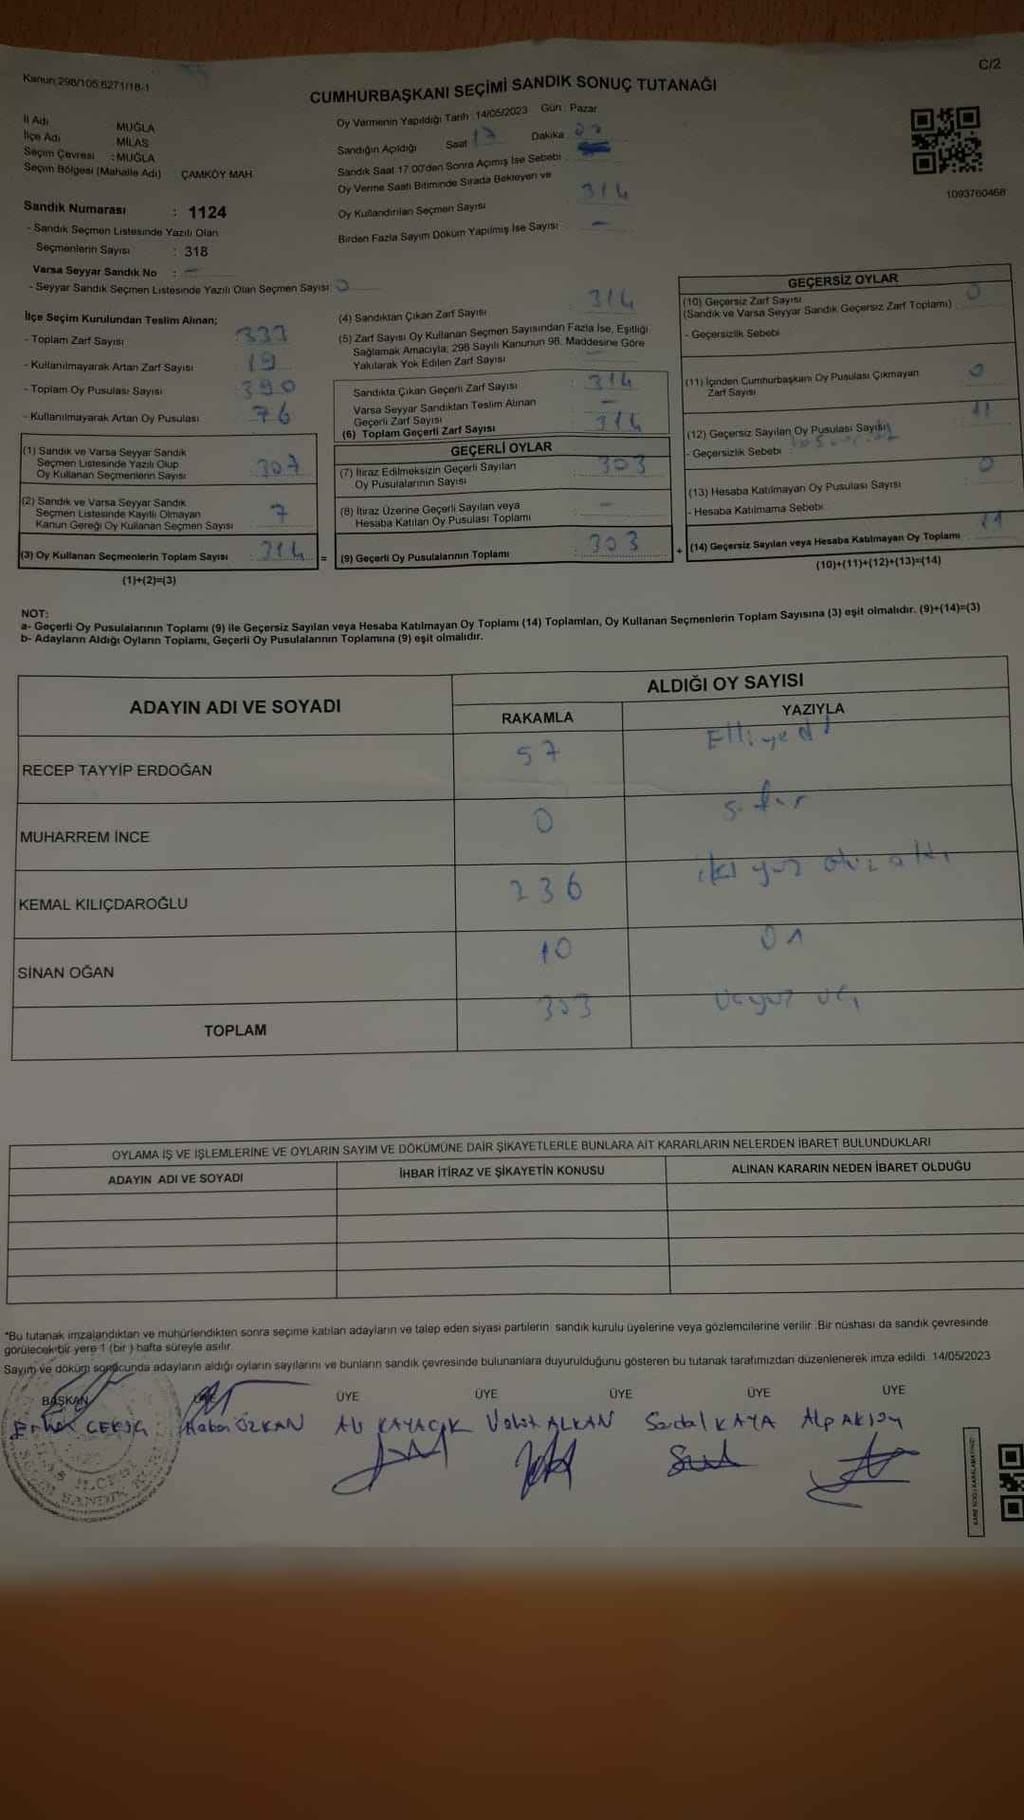 Kanun:298/105,6271/18-1
C/2
CUMHURBAŞKANI SEÇİMİ SANDIK SONUÇ TUTANAĞI
İl Adı MUĞLA
İlçe Adı MİLAS
Seçim Çevresi :MUĞLA
Seçim Bölgesi (Mahalle Adı) ÇAMKÖY MAH
Sandık Numarası : 1124
- Sandık Seçmen Listesinde Yazılı Olan
Seçmenlerin Sayısı : 318
Varsa Seyyar Sandık No : -
- Seyyar Sandık Seçmen Listesinde Yazılı Olan Seçmen Sayısı: 0
Oy Vermenin Yapıldığı Tarih :14/05/2023 Gün : Pazar
Sandığın Açıldığı Saat 17 Dakika
Sandık Saat 17:00'den Sonra Açımış İse Sebebi
Oy Verme Saati Bitiminde Sırada Bekleyen ve
Oy Kullandırılan Seçmen Sayısı 314
Birden Fazla Sayım Döküm Yapılmış İse Sayısı: -
1093760468
İlçe Seçim Kurulundan Teslim Alınan;
- Toplam Zarf Sayısı 333
- Kullanılmayarak Artan Zarf Sayısı 19
- Toplam Oy Pusulası Sayısı 390
- Kullanılmayarak Artan Oy Pusulası 76
(1) Sandık ve Varsa Seyyar Sandık
Seçmen Listesinde Yazılı Olup
Oy Kullanan Seçmenlerin Sayısı 307
(2) Sandık ve Varsa Seyyar Sandık
Seçmen Listesinde Kayıtlı Olmayan
Kanun Gereği Oy Kullanan Seçmen Sayısı 7
(3) Oy Kullanan Seçmenlerin Toplam Sayısı 314 =
(1)+(2)=(3)
(4) Sandıktan Çıkan Zarf Sayısı 314
(5) Zarf Sayısı Oy Kullanan Seçmen Sayısından Fazla İse, Eşitliği
Sağlamak Amacıyla; 298 Sayılı Kanunun 98. Maddesine Göre
Yakılarak Yok Edilen Zarf Sayısı
Sandıkta Çıkan Geçerli Zarf Sayısı : 314
Varsa Seyyar Sandıktan Teslim Alınan
Geçerli Zarf Sayısı -
(6) Toplam Geçerli Zarf Sayısı 314
GEÇERLİ OYLAR
(7) İtiraz Edilmeksizin Geçerli Sayılan
Oy Pusulalarının Sayısı : 303
(8) İtiraz Üzerine Geçerli Sayılan veya
Hesaba Katılan Oy Pusulası Toplamı : -
(9) Geçerli Oy Pusulalarının Toplamı : 303 +
GEÇERSİZ OYLAR
(10) Geçersiz Zarf Sayısı 0
(Sandık ve Varsa Seyyar Sandık Geçersiz Zarf Toplamı)
- Geçersizlik Sebebi
(11) İçinden Cumhurbaşkanı Oy Pusulası Çıkmayan
Zarf Sayısı 0
(12) Geçersiz Sayılan Oy Pusulası Sayısı 11
- Geçersizlik Sebebi
(13) Hesaba Katılmayan Oy Pusulası Sayısı 0
- Hesaba Katılmama Sebebi
(14) Geçersiz Sayılan veya Hesaba Katılmayan Oy Toplamı 11
(10)+(11)+(12)+(13)=(14)
NOT:
a- Geçerli Oy Pusulalarının Toplamı (9) ile Geçersiz Sayılan veya Hesaba Katılmayan Oy Toplamı (14) Toplamları, Oy Kullanan Seçmenlerin Toplam Sayısına (3) eşit olmalıdır. (9)+(14)=(3)
b- Adayların Aldığı Oyların Toplamı, Geçerli Oy Pusulalarının Toplamına (9) eşit olmalıdır.
ADAYIN ADI VE SOYADI
ALDIĞI OY SAYISI
RAKAMLA YAZIYLA
RECEP TAYYİP ERDOĞAN 57 Elliyedi
MUHARREM İNCE 0 sıfır
KEMAL KILIÇDAROĞLU 236 iki yüz otuz altı
SİNAN OĞAN 10 On
TOPLAM 303 Üçyüz üç
OYLAMA İŞ VE İŞLEMLERİNE VE OYLARIN SAYIM VE DÖKÜMÜNE DAİR ŞİKAYETLERLE BUNLARA AİT KARARLARIN NELERDEN İBARET BULUNDUKLARI
ADAYIN ADI VE SOYADI İHBAR İTİRAZ VE ŞİKAYETİN KONUSU ALINAN KARARIN NEDEN İBARET OLDUĞU
*Bu tutanak imzalandıktan ve mühürlendikten sonra seçime katılan adayların ve talep eden siyasi partilerin sandık kurulu üyelerine veya gözlemcilerine verilir .Bir nüshası da sandık çevresinde
görülecek bir yere 1 (bir) hafta süreyle asılır.
Sayım ve döküm sonucunda adayların aldığı oyların sayılarını ve bunların sandık çevresinde bulunanlara duyurulduğunu gösteren bu tutanak tarafımızdan düzenlenerek imza edildi. 14/05/2023
BAŞKAN ÜYE ÜYE ÜYE ÜYE ÜYE ÜYE
ÖZKAN Ali KAYAÇIK Vahit ALKAN Serdal KAYA Alp